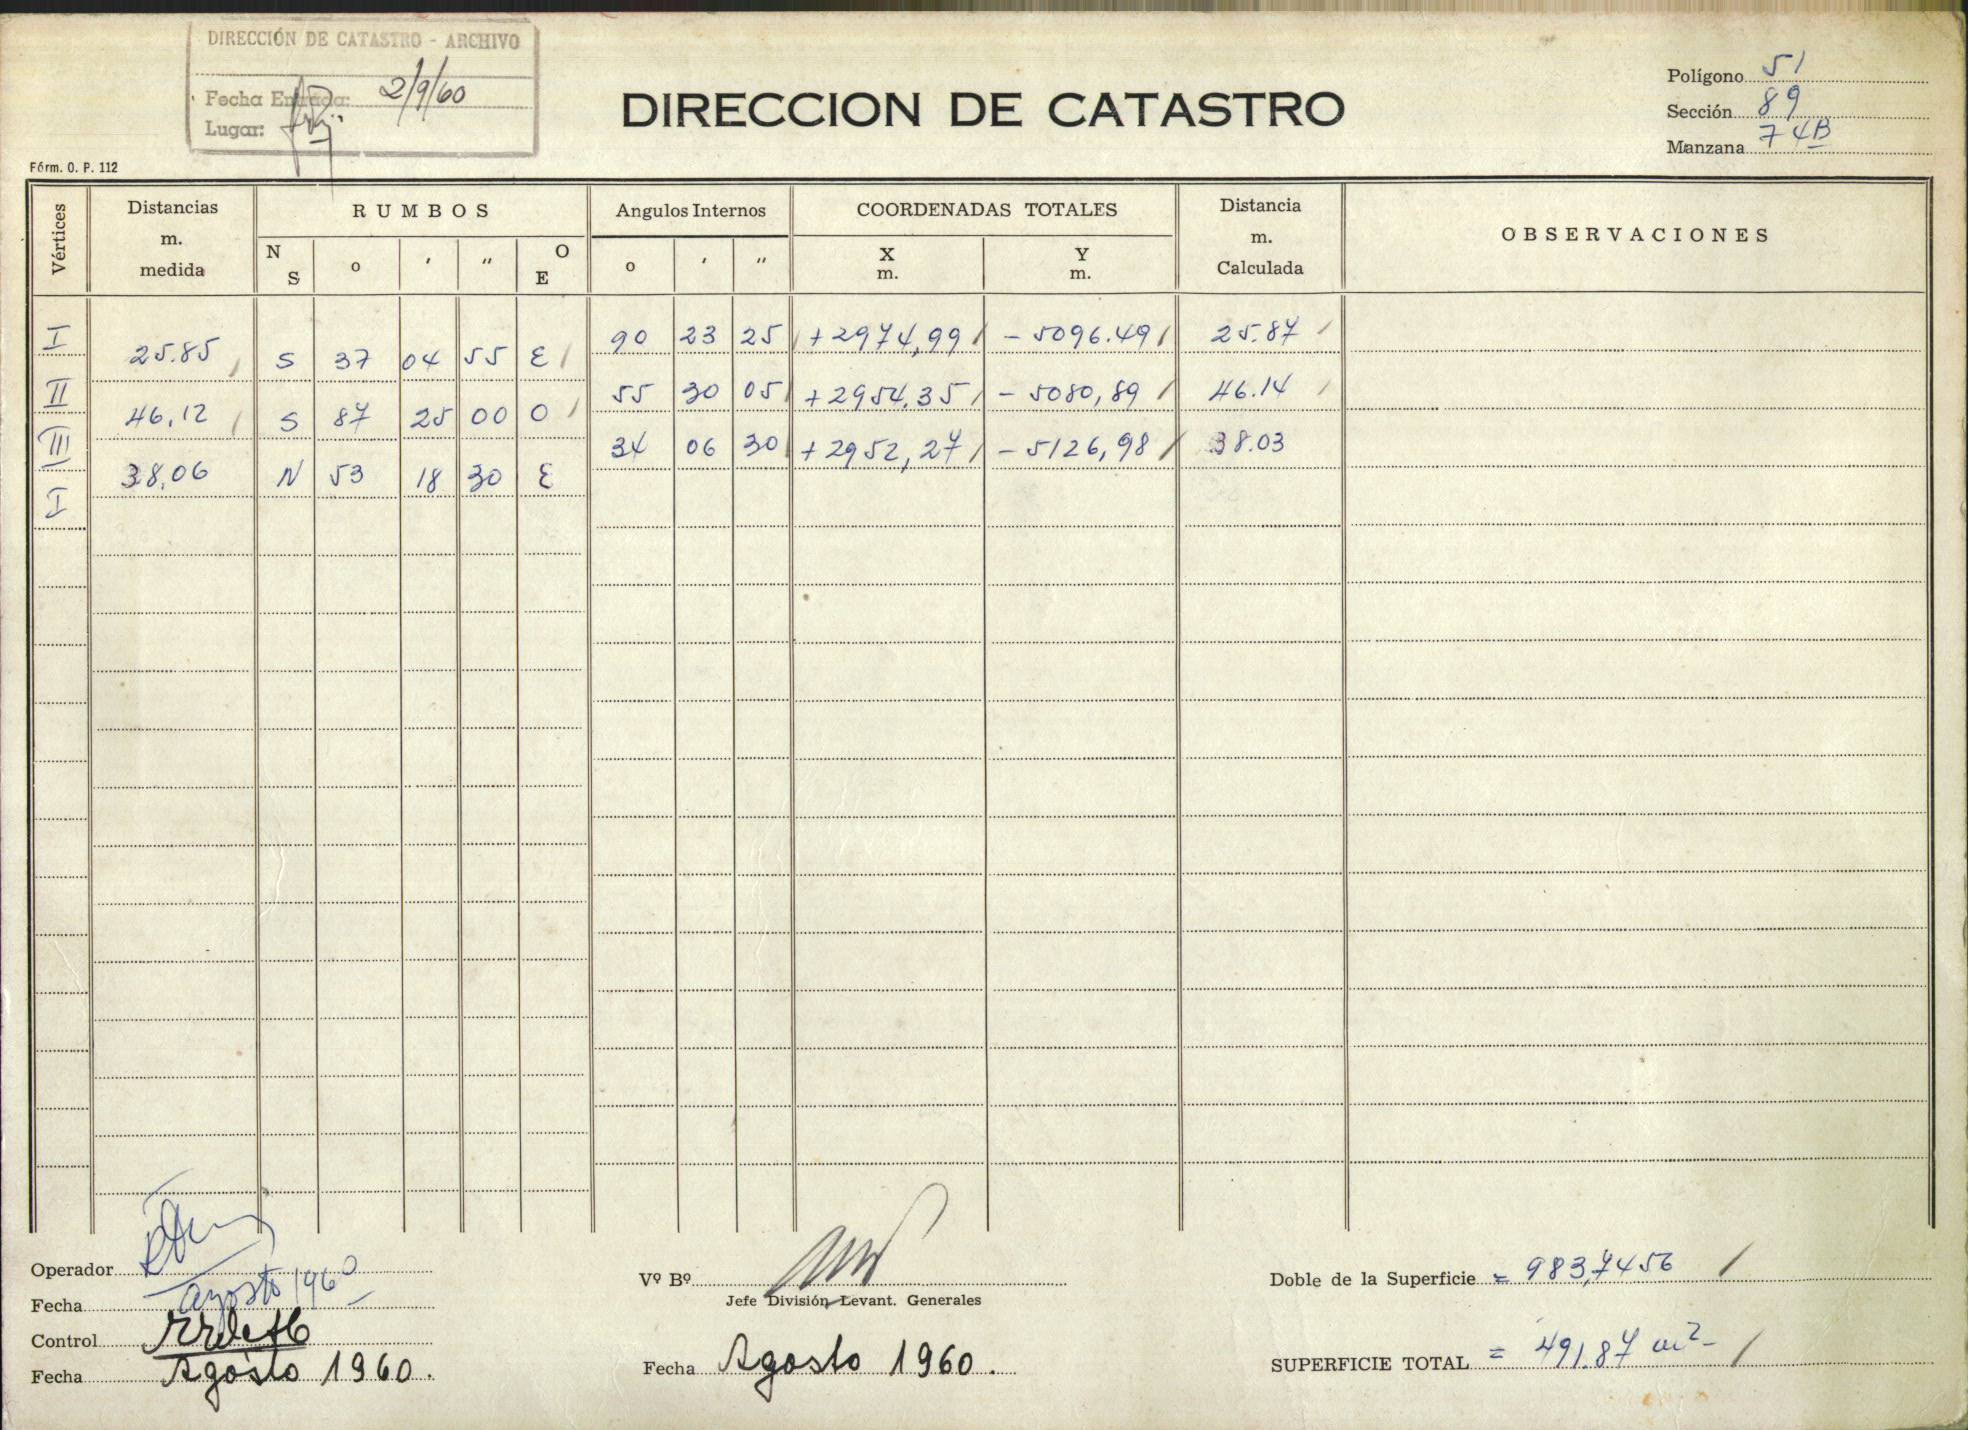 DIRECCIÓN DE CATASTRO - ARCHIVO
Fecha Entrada: 2/9/60
Lugar:
DIRECCION DE CATASTRO
Polígono 51
Sección 89
Manzana 74B
Fórm. O. P. 112
Vértices
Distancias m. medida
RUMBOS
N S
o
'
"
O E
Angulos Internos
o ' "
COORDENADAS TOTALES
X m.
Y m.
Distancia m. Calculada
OBSERVACIONES
I 90 23 25 +2974,99 -5096.49 25.87
25.85 S 37 04 55 E
II 55 30 05 +2954,35 -5080,89 46.14
46,12 S 87 25 00 O
III 34 06 30 +2952,27 -5126,98 38.03
38,06 N 53 18 30 E
I
Operador
Fecha agosto 1960
Control
Fecha Agosto 1960.
Vº Bº
Jefe División Levant. Generales
Fecha Agosto 1960.
Doble de la Superficie = 983,7456
SUPERFICIE TOTAL = 491.87 m2-